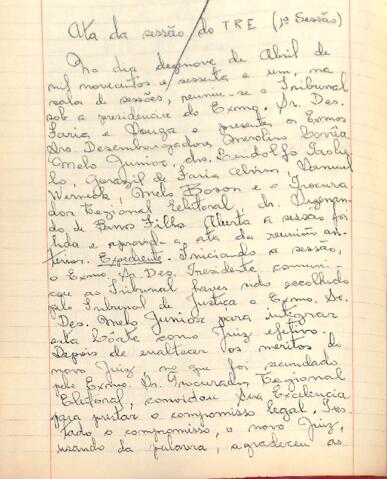 Ata da sessão do TRE (1ª Sessão)
No dia dezenove de Abril de
mil novecentos e sessenta e um, na
sala de sessões, reuniu-se o Tribunal
sob a presidência do Exmo. Sr. Des.
Faria e Souza e presentes os Exmos
Srs Desembargadores Merolino Corrêa
Melo Junior, drs. Lindolfo
de Faria Alvim, Manuel
Werneck, Melo Boson e o Procura
dor Regional Eleitoral, dr.
do de Barros Filho. Aberta a sessão, foi
lida e aprovada a ata da reunião an-
terior. Expediente. Iniciando a sessão,
o Exmo. Sr. Des. Presidente comuni-
cou ao Tribunal haver sido escolhido
pelo Tribunal de Justiça o Exmo. Sr.
Des. Melo Junior para integrar
esta Corte como Juiz efetivo.
Depois de enaltecer os meritos do
novo Juiz, no que foi secundado
pelo Exmo. Dr. Procurador Regional
Eleitoral, convidou Sua Excelencia
para prestar o compromisso legal. Pres
tado o compromisso, o novo Juiz,
usando da palavra, agradeceu as